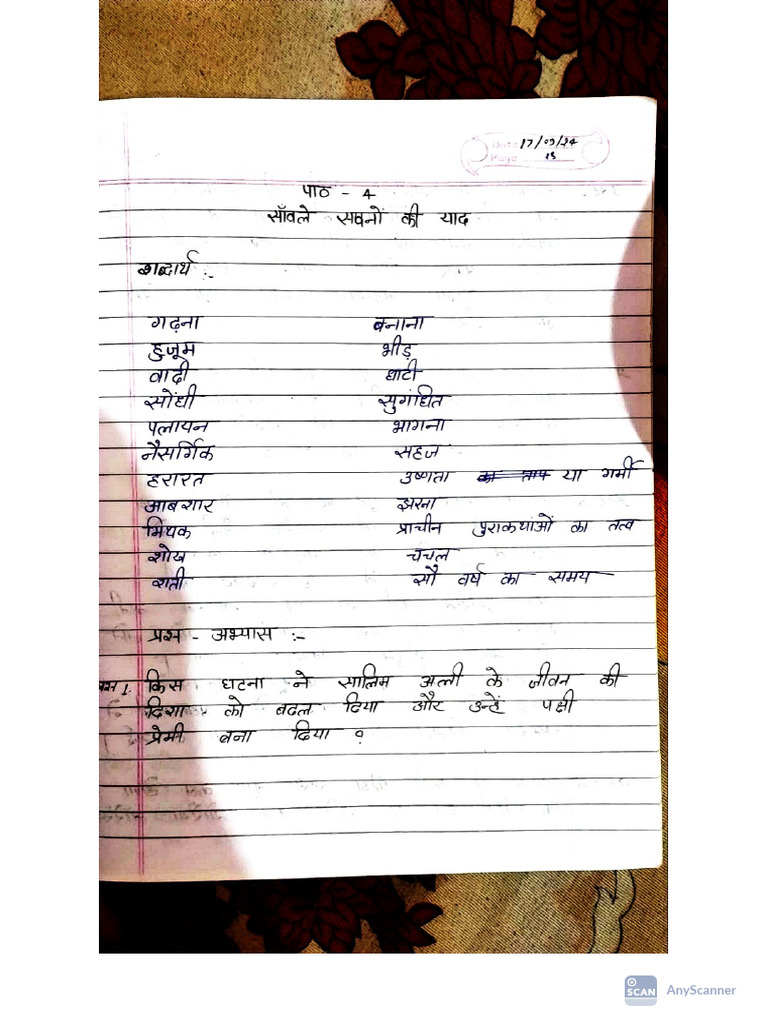 Date 17/09/24
Page 13
पाठ - 4
साँवले सवनों की याद
शब्दार्थ :-
गढ़ना बनाना
हुजूम भीड़
वादी घाटी
सोंधी सुगंधित
पलायन भागना
नैसर्गिक सहज
हरारत उष्णता या गर्मी
आबशार झरना
मिथक प्राचीन पुराकथाओं का तत्व
शोख चंचल
शती सौ वर्ष का समय
प्रश्न - अभ्यास :-
प्रश्न 1. किस घटना ने सालिम अली के जीवन की
दिशा को बदल दिया और उन्हें पक्षी
प्रेमी बना दिया ?
SCAN AnyScanner